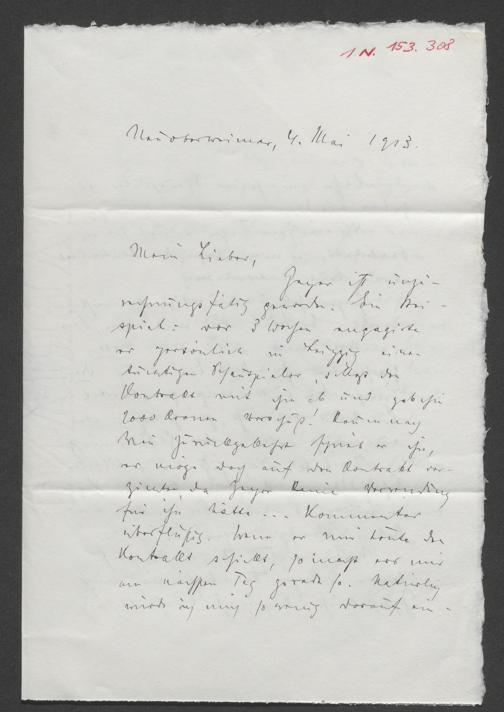 1 N. 153.308
Neuoberweimar, 4. Mai 1913.
Mein Lieber,
Geyer ist unzu-
rechnungsfähig geworden. Ein Bei-
spiel: vor 3 Wochen engagirte
er persönlich in Leipzig einen
tüchtigen Schauspieler, schloß den
Kontrakt mit ihm ab und gab ihm
2000 Kronen Vorschuß! Kaum nach
Wien zurückgekehrt schrieb er ihm,
er möge doch auf den Kontrakt ver-
zichten, da Geyer keine Verwendung
für ihn hätte ... Kommentar
überflüßig. Wenn er mir heute den
Kontrakt schickt, so macht er's mir
am nächsten Tag gerade so. Natürlich
würde ich mich so wenig darauf ein-